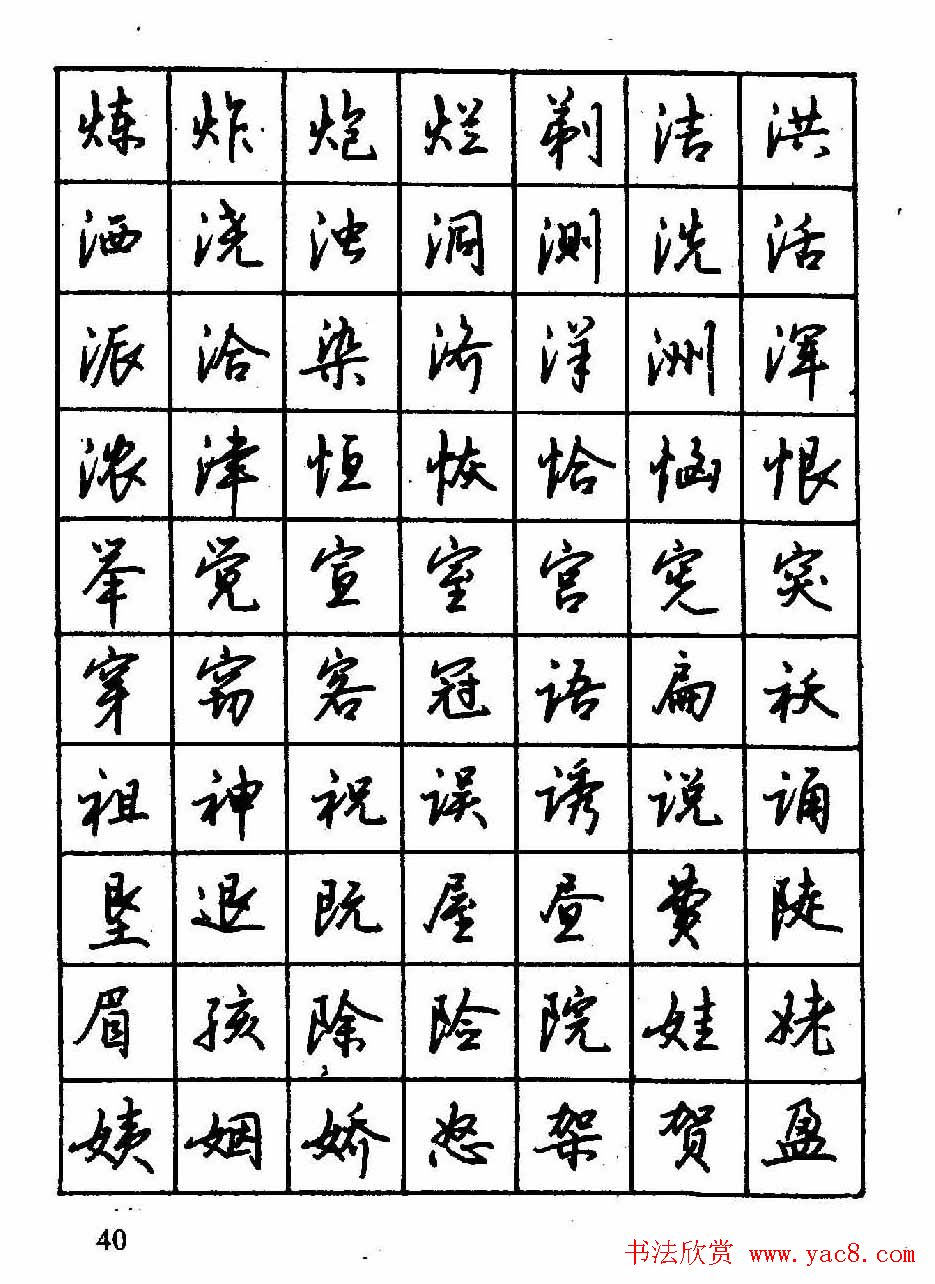 炼炸炮烂剃洁洪
洒浇浊洞测洗活
派洽染济洋洲浑
浓津恒恢恰恼恨
举觉宣室宫宪突
穿窃客冠语扁袄
祖神祝误诱说诵
垦退既屋昼费陡
眉孩除险院娃姥
姨姻娇怒架贺盈
40
书法欣赏 www.yac8.com